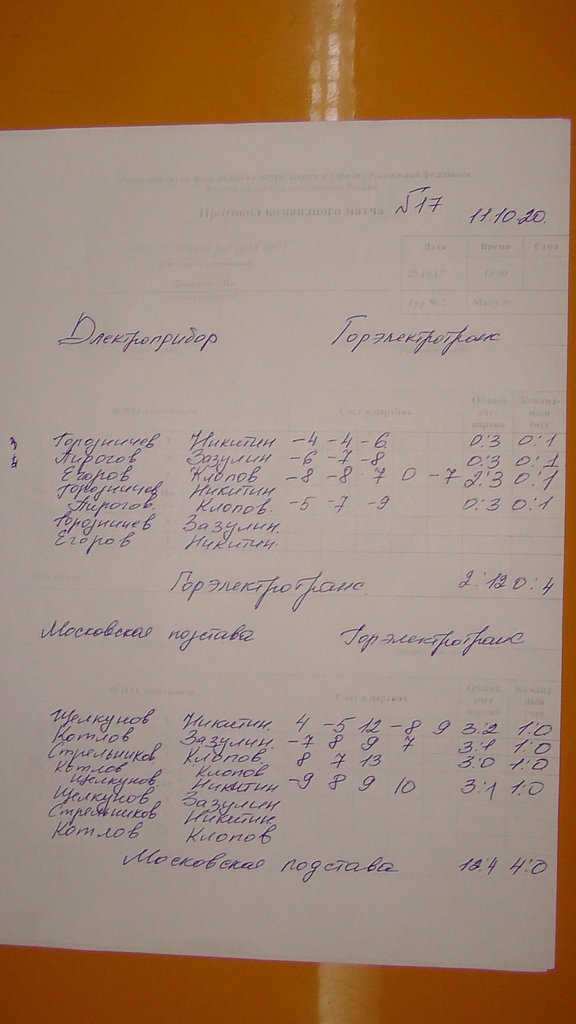 Министерство по физической культуре, спорту и туризму Российской федерации
Протокол командного матча №17 11.10.20.
Дата Время Стол
Электроприбор Горэлектротранс
Ф.И.О. участников Счет в партиях Общий счет партий Команд-ный счет
3 Городничев Никитин -4 -4 -6 0:3 0:1
4 Пирогов Зазулин -6 -7 -8 0:3 0:1
Егоров Клопов -8 -8 7 0 -7 2:3 0:1
Городничев Никитин
Пирогов Клопов. -5 -7 -9 0:3 0:1
Городничев Зазулин.
Егоров Никитин.
Горэлектротранс. 2:12 0:4
Московская подстава Горэлектротранс
Ф.И.О. участников Счет в партиях Общий счет партий Команд-ный счет
Щелкунов Никитин. 4 -5 12 -8 9 3:2 1:0
Котлов Зазулин. -7 8 9 7 3:1 1:0
Стрельников Клопов. 8 7 13 3:0 1:0
Котлов Клопов
Щелкунов. Никитин -9 8 9 10 3:1 1:0
Щелкунов Зазулин
Стрельников Никитин
Котлов Клопов
Московская подстава 12:4 4:0